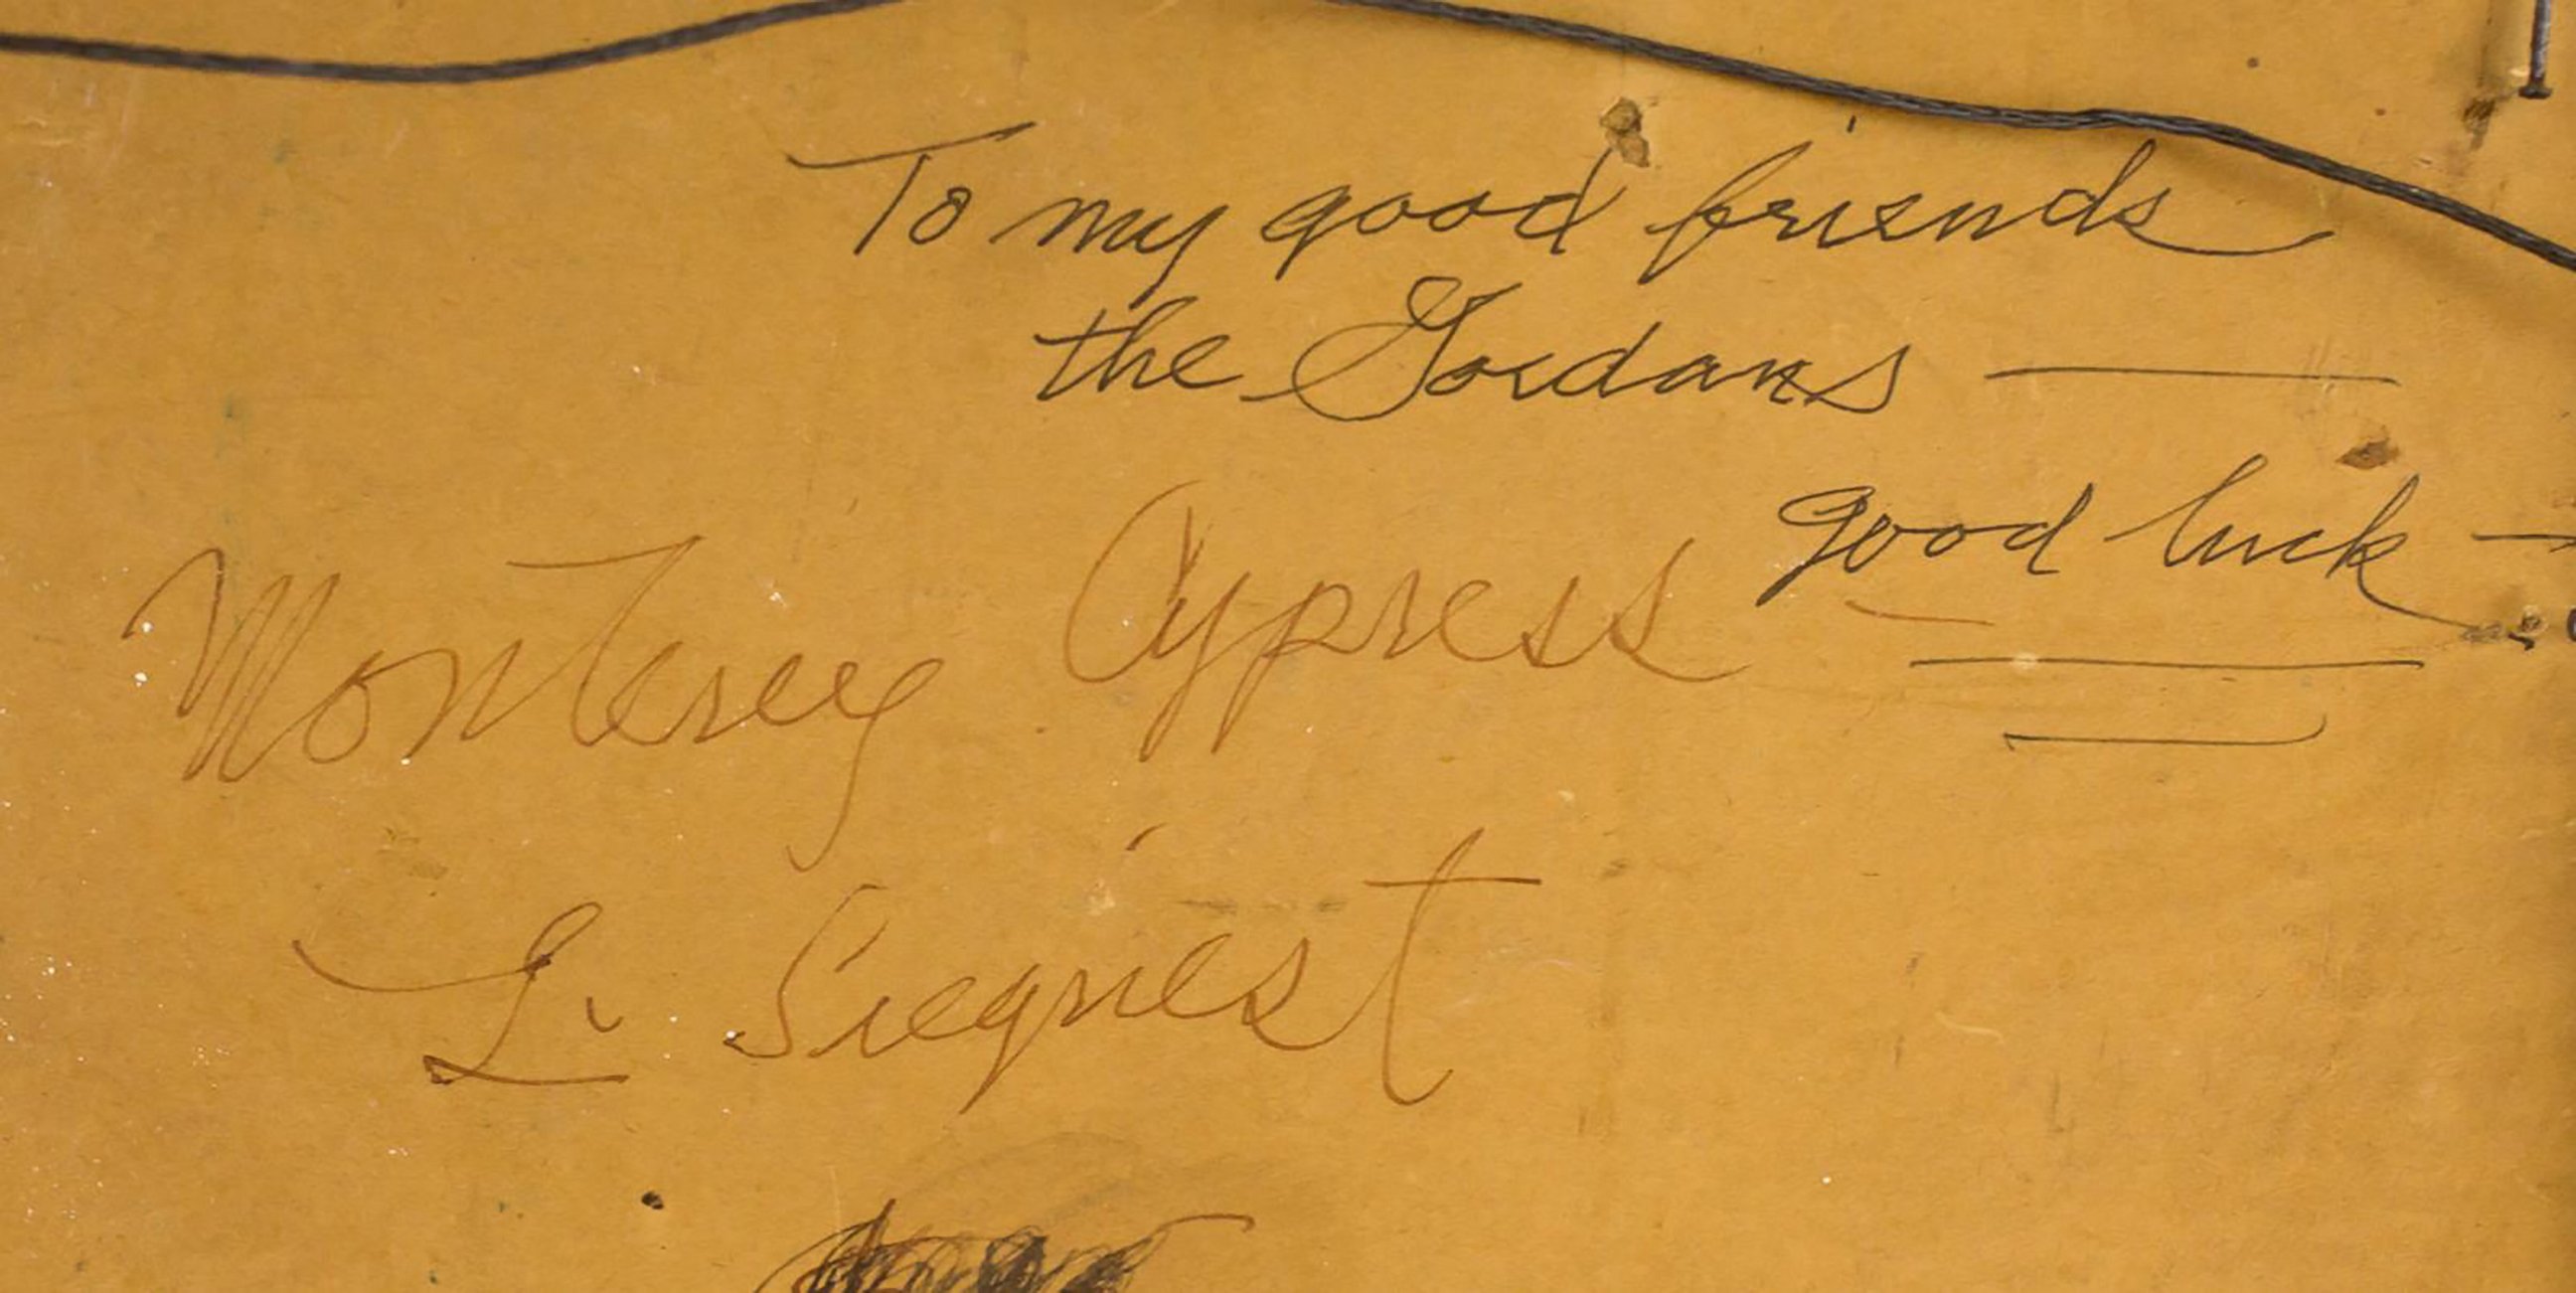 To my good friends
the Gordans —
good luck —
Monterey Cypress —
L. Siegriest